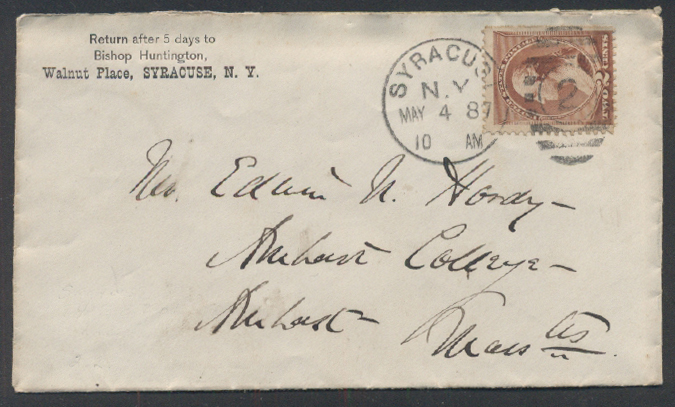 Return after 5 days to
Bishop Huntington,
Walnut Place, SYRACUSE, N. Y.
SYRACUS
N.Y.
MAY 4 87
10 AM
2
TWO 2 CENTS
Edwin N. Hardy
Amherst College
Amherst
Mass